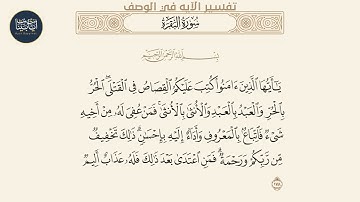 تفسير الآية في الوصف
سُورَةُ البَقَرَةِ
بِسْمِ اللَّهِ الرَّحْمَٰنِ الرَّحِيمِ
يَـٰٓأَيُّهَا ٱلَّذِينَ ءَامَنُوا۟ كُتِبَ عَلَيْكُمُ ٱلْقِصَاصُ فِى ٱلْقَتْلَى ۖ ٱلْحُرُّ
بِٱلْحُرِّ وَٱلْعَبْدُ بِٱلْعَبْدِ وَٱلْأُنثَىٰ بِٱلْأُنثَىٰ ۚ فَمَنْ عُفِىَ لَهُۥ مِنْ أَخِيهِ
شَىْءٌ فَٱتِّبَاعٌۢ بِٱلْمَعْرُوفِ وَأَدَآءٌ إِلَيْهِ بِإِحْسَـٰنٍ ۗ ذَٰلِكَ تَخْفِيفٌ
مِّن رَّبِّكُمْ وَرَحْمَةٌ ۗ فَمَنِ ٱعْتَدَىٰ بَعْدَ ذَٰلِكَ فَلَهُۥ عَذَابٌ أَلِيمٌ
١٧٨